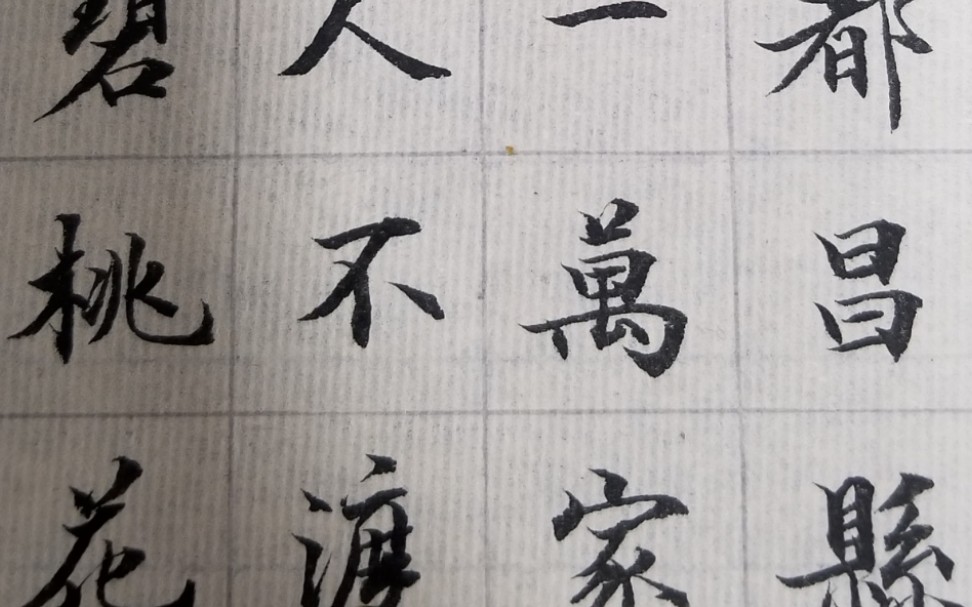 都昌縣
一萬家
人不渡
碧桃花